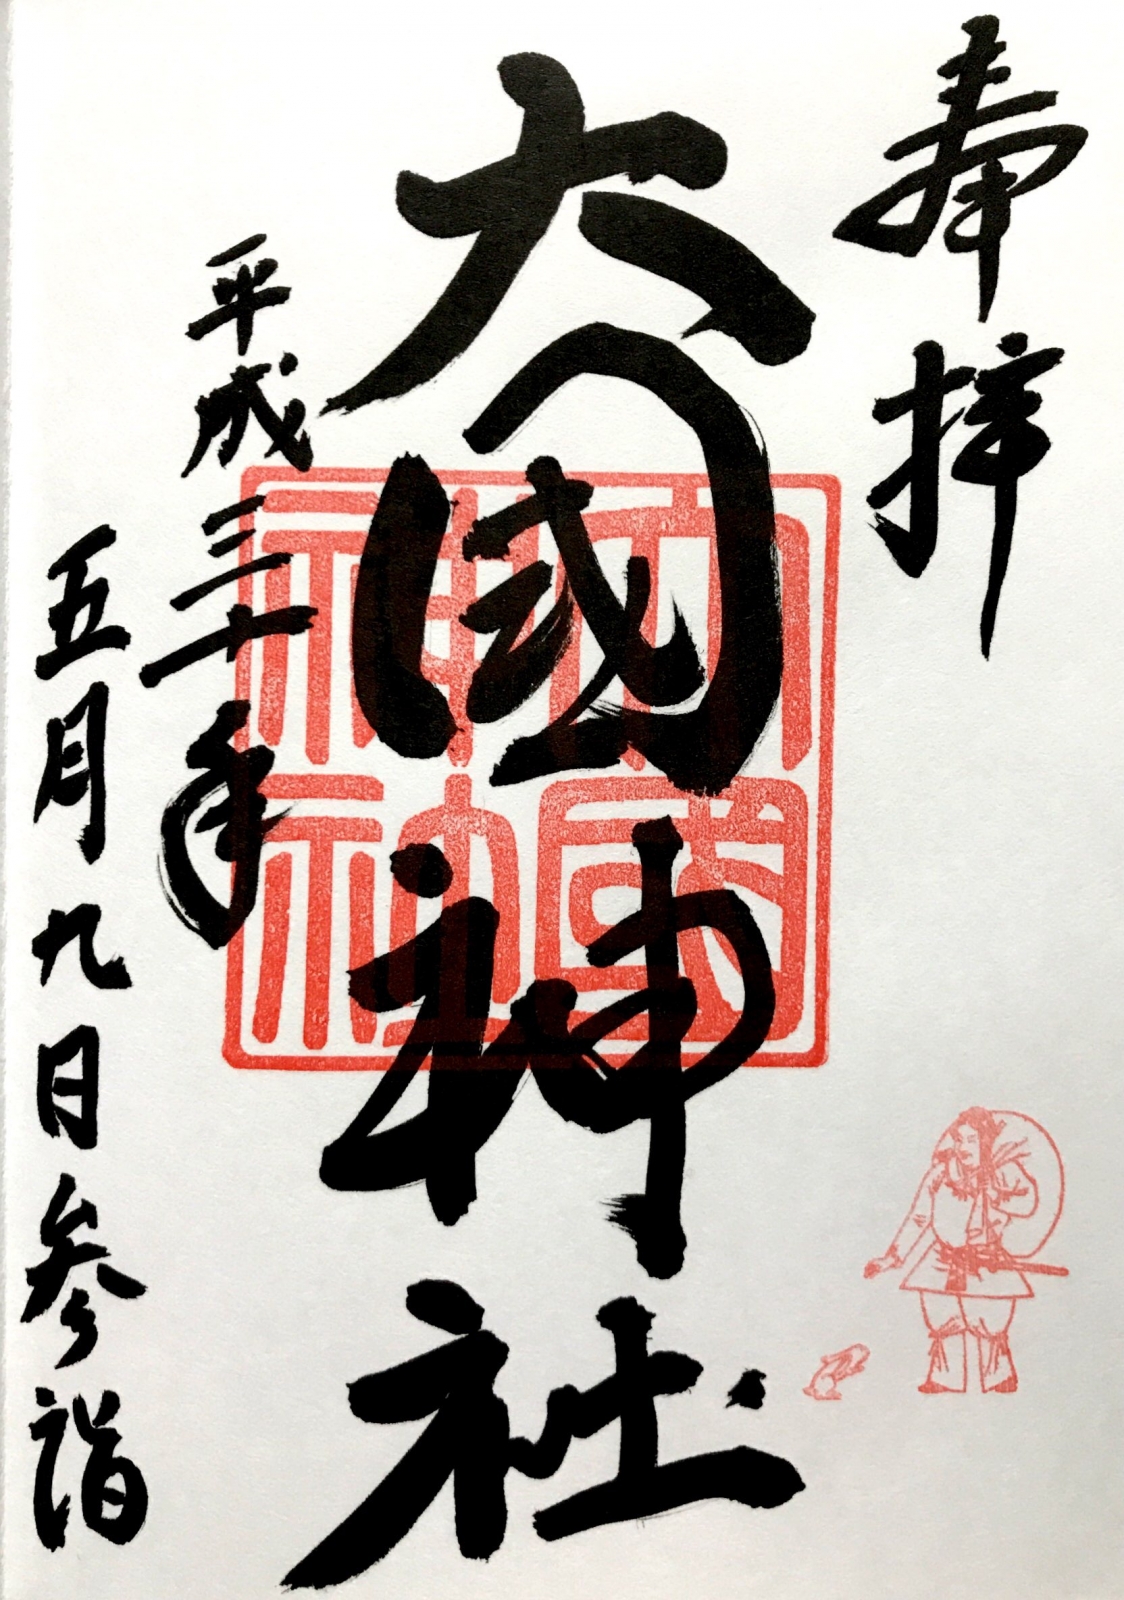 奉拝
大國神社
平成三十年
五月九日参詣
大國
神社